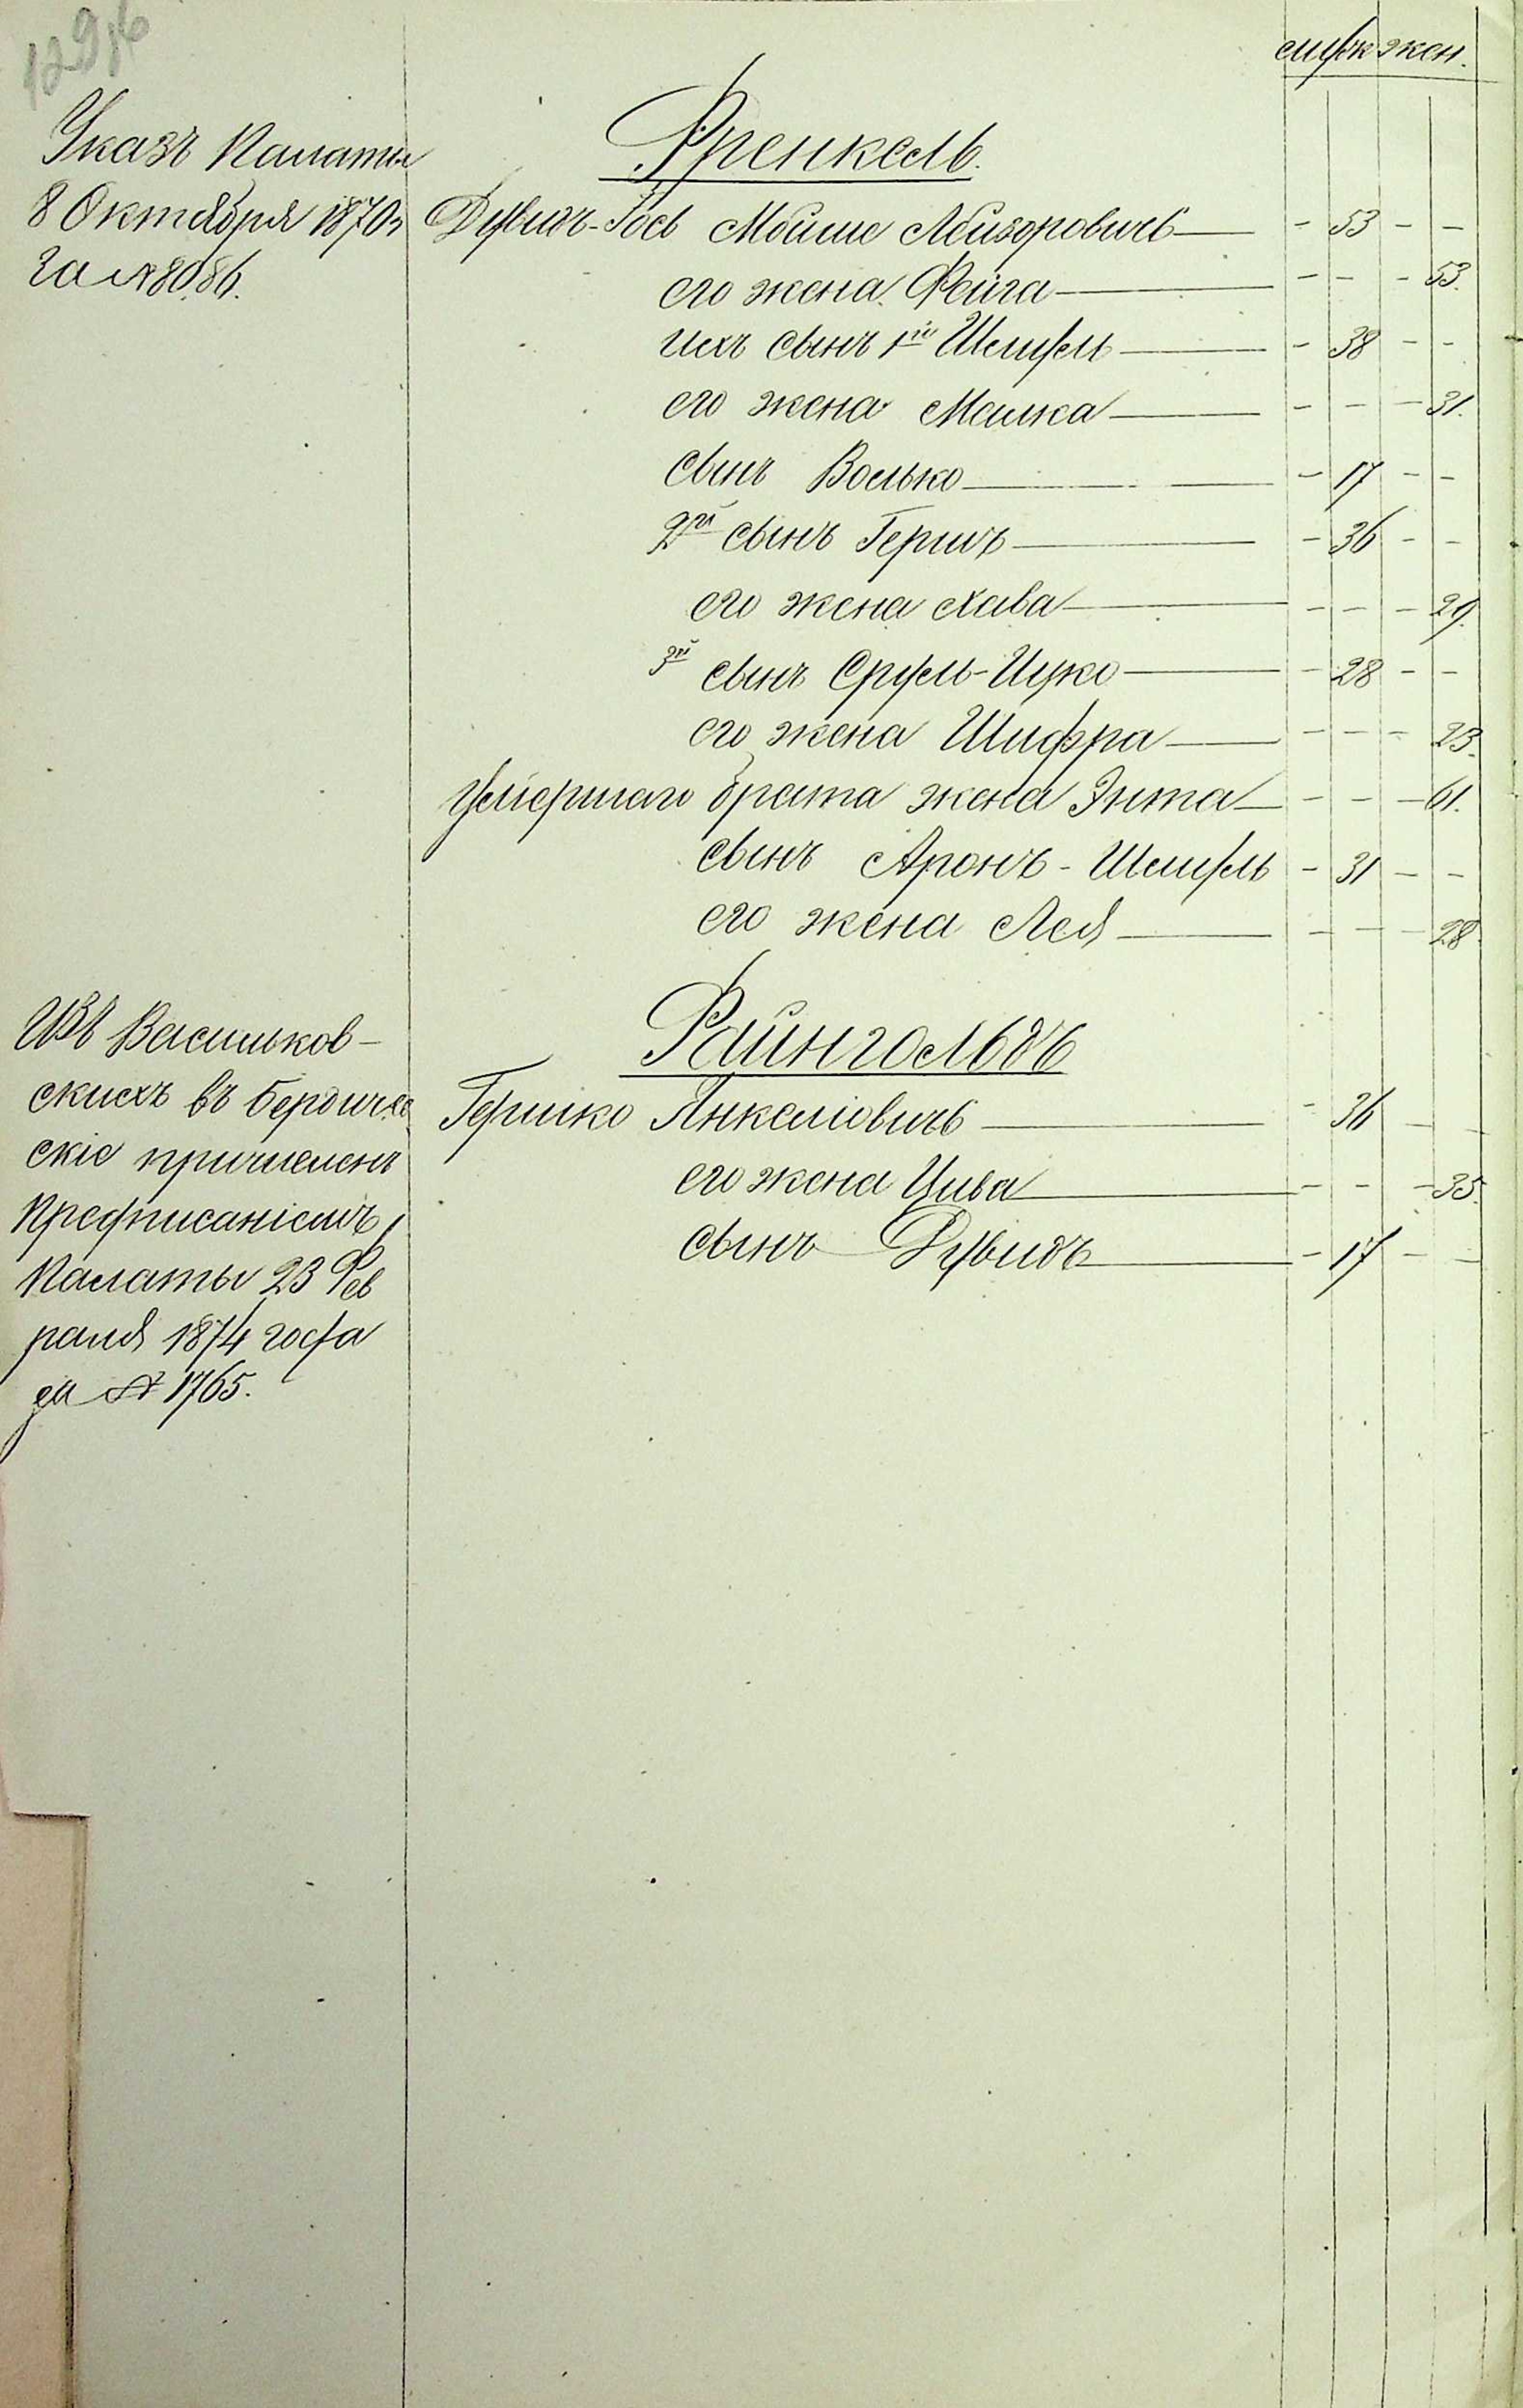 муж жен.
Указъ Палаты
8 Октября 1870 г
за № 8086.
Френкель.
Дувидъ-Іось Мойше Лейзоровичъ — 53
его жена Фейга — 53.
ихъ сынъ 1й Шмуль — 38
его жена Малка — 31.
сынъ Волько — 17
2й сынъ Гершъ — 36
его жена Хава — 29.
3й сынъ Сруль-Ицко — 28
его жена Шифра — 23.
умершаго брата жена Энта — 61.
сынъ Аронъ-Шмуль — 31
его жена Лея — 28.
Изъ Васильков-
скихъ въ Бердичев
скіе причислены
предписаніемъ
Палаты 23 Фев
раля 1874 года
за № 1765.
Файнгольдъ
Гершко Янкелiовичъ — 36
его жена Цива — 35.
сынъ Дувидъ — 17